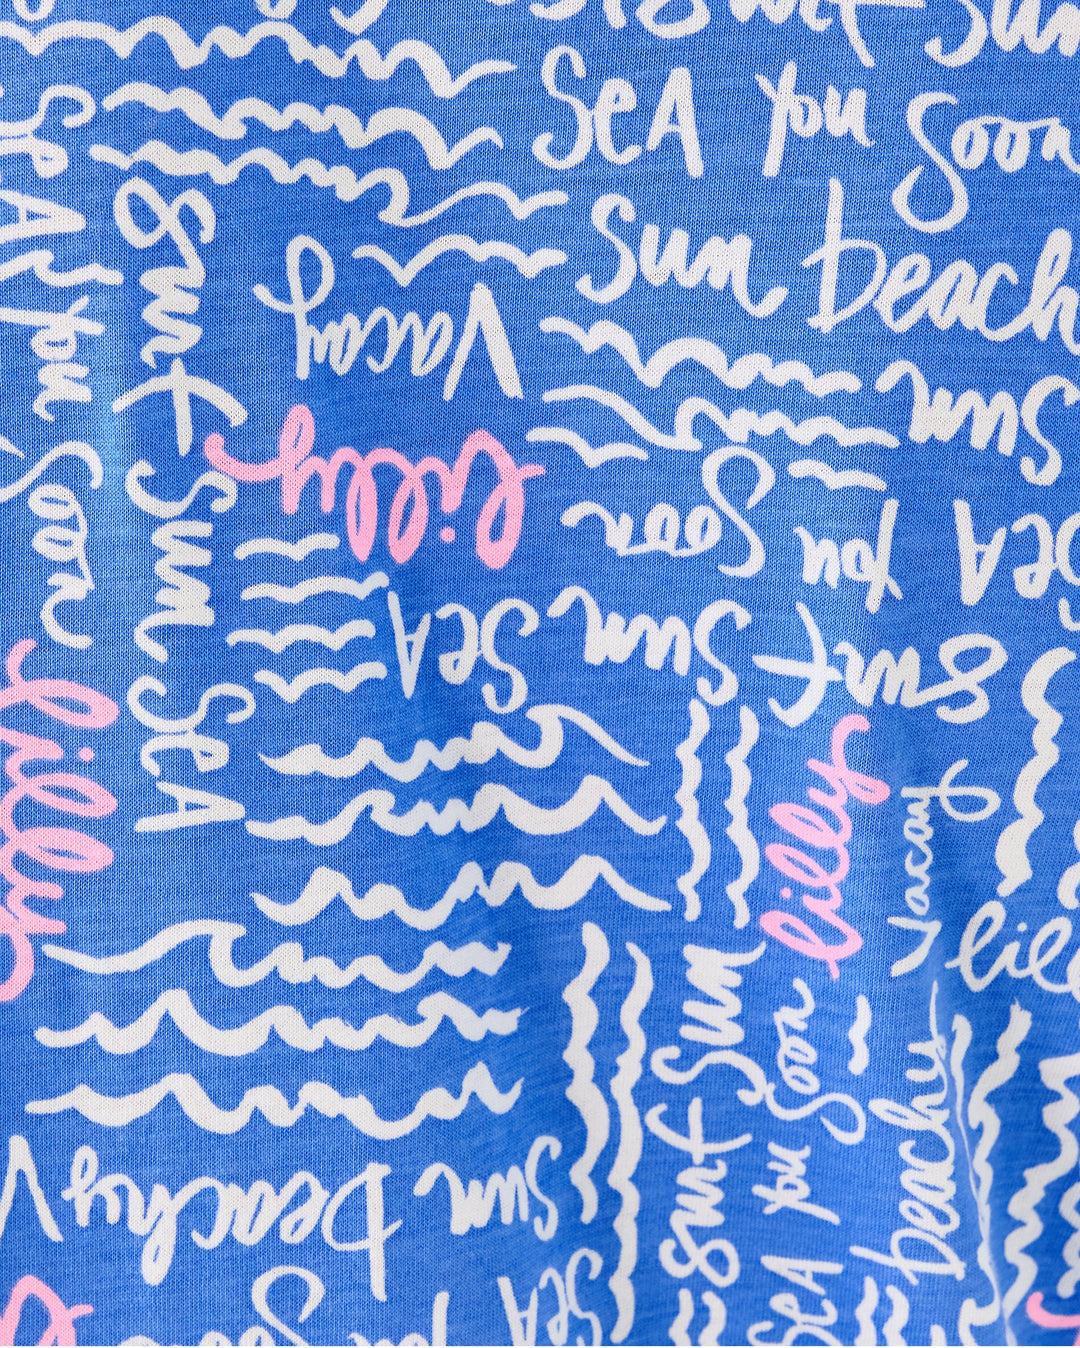 Surf Sun
SEA you Soon
Sun beach
SEA you Soon
Surf Sun SEA
Vacay
lilly
Sun
Soon
you SEA
SEA Sun Surf
lilly
lilly
Vacay
lil
Surf Sun
SEA you Soon
beachy
Sun beachy V
SEA you So